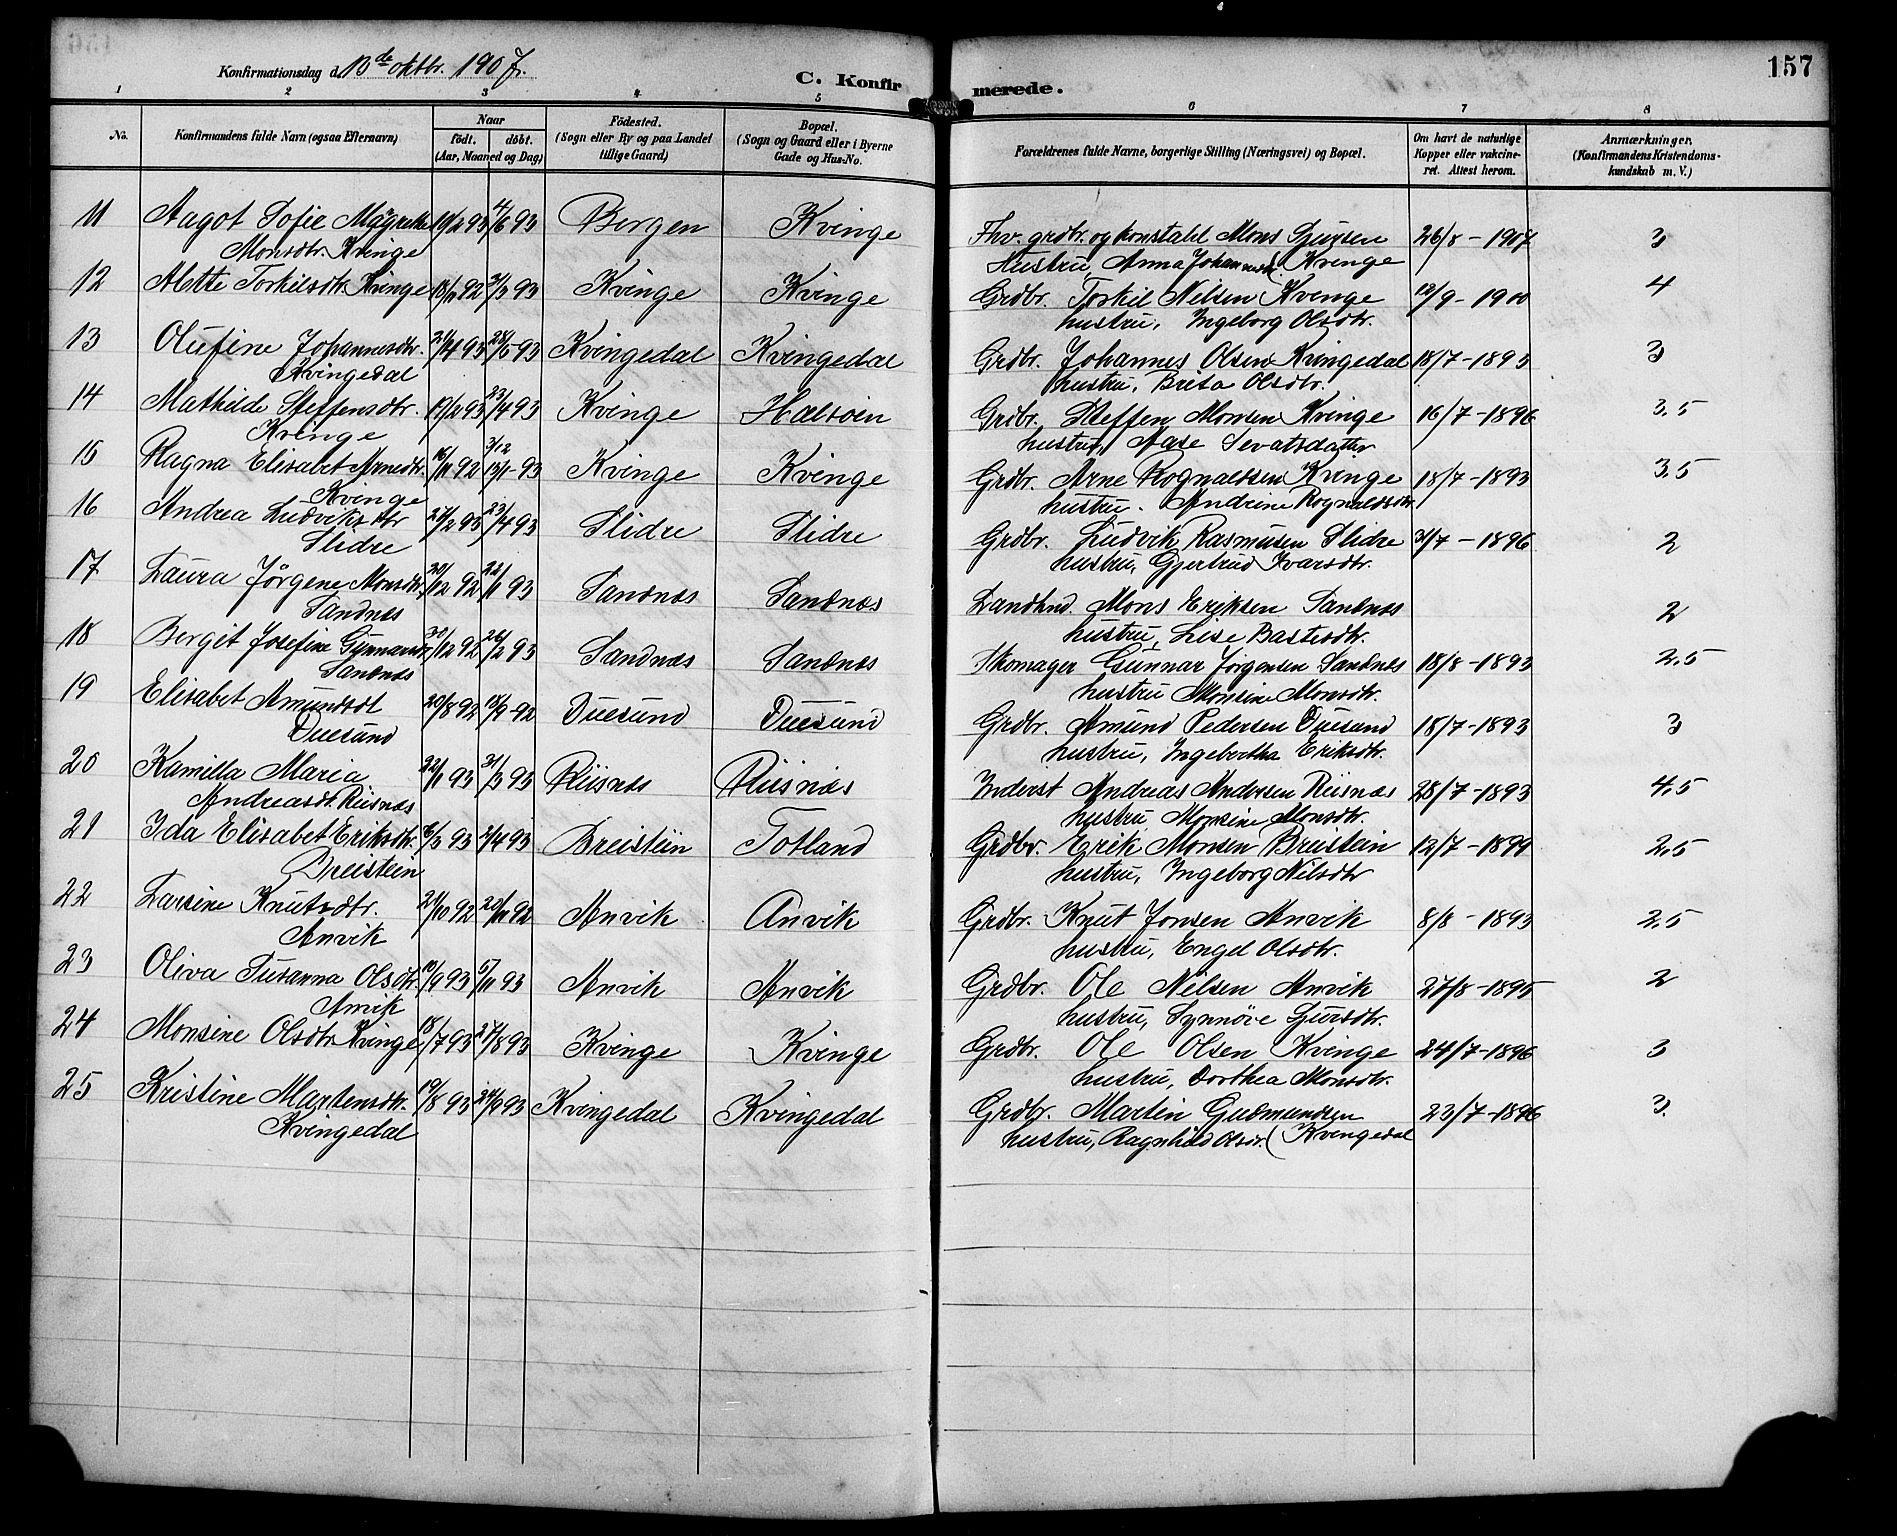 157
Konfirmationsdag d. 13de oktbr. 1907.
C. Konfirmerede.
1 2 3 4 5 6 7 8
No. Konfirmandens fulde Navn (ogsaa Efternavn) Naar födt. döbt. (Aar, Maaned og Dag) Födested. (Sogn eller By og paa Landet tillige Gaard) Bopæl. (Sogn og Gaard eller i Byerne Gade og Hus-No. Forældrenes fulde Navne, borgerlige Stilling (Næringsvei) og Bopæl. Om havt de naturlige Kopper eller vakcineret. Attest herom. Anmærkninger. (Konfirmandens Kristendomskundskab m. V.)
11 Aagot Sofie Margrethe 19/2 93 4/6 93 Bergen Kvinge Fhv. grdbr. og konstabl Mons Sjursen 26/8 - 1907 3
Monsdtr. Kvinge Hustru, Anna Johannesdtr. Kvinge
12 Alette Torkilsdtr. Kvinge 92 93 Kvinge Kvinge Grdbr. Torkil Nelsen Kvinge 12/9 - 1900 4
hustru, Ingeborg Olsdtr.
13 Olufine Johannesdtr. 21/4 93 28/5 93 Kvingedal Kvingedal Grdbr. Johannes Olsen Kvingedal 18/7 - 1893 3
Kvingedal hustru, Brita Olsdtr.
14 Mathilde Steffensdtr. 17/2 93 23/4 93 Kvinge Halsöien Grdbr. Steffen Monsen Kvinge 16/7 - 1896 3,5
Kvinge hustru, Aase Sevatsdatter
15 Ragna Elisabet Arnedtr. 16/11 92 3/12 13/1 - 93 Kvinge Kvinge Grdbr. Arne Rognaldsen Kvinge 18/7 - 1893 3,5
Kvinge hustru. Andrine Rognaldsdtr
16 Andrea Ludviksdtr 24/2 93 23/4 93 Slidre Slidre Grdbr. Ludvik Rasmusen Slidre 21/7 - 1896 2
Slidre hustru, Gjertrud Ivarsdtr.
17 Laura Jörgene Monsdtr. 20/12 92 22/1 93 Sandnæs Sandnæs Landhnd. Mons Eriksen Sandnæs 2
Sandnæs hustru, Lise Bastesdtr.
18 Bergit Josefine Gunnarsdtr 30/12 92 26/2 93 Sandnæs Sandnæs Skomager Gunnar Jörgensen Sandnæs 18/8 - 1893 2,5
Sandnæs hustru Monsine Monsdtr.
19 Elisabet Amundsdt 20/8 92 18/9 - 92 Duesund Duesund Grdbr. Amund Pedersen Duesund 18/7 - 1893 3
Duesund hustru, Ingebortha Eriksdtr.
20 Kamilla Maria 22/1 93 31/3 93 Riisnæs Riisnæs Inderst Andreas Andersen Riisnæs 28/7 - 1893 4,5
Andreasdt. Riisnæs hustru Monsine Monsdtr.
21 Ida Elisabet Eriksdtr. 6/3 93 2/4 93 Breistein Totland Grdbr. Erik Monsen Breistein 12/7 - 1899 2,5
Breistein hustru, Ingeborg Nilsdtr
22 Larsine Knutsdtr. 21/10 92 20/11 92 Anvik Anvik Grdbr. Knut Jonsen Anvik 8/8 - 1893 2,5
Anvik hustru, Engel Olsdtr.
23 Oliva Susanna Olsdtr. 10/9 93 5/11 93 Anvik Anvik Grdbr. Ole Nilsen Anvik 27/8 - 1895 2
Anvik hustru, Synnöve Sjursdtr.
24 Monsine Olsdtr. Kvinge 18/7 93 27/8 93 Kvinge Kvinge Grdbr. Ole Olsen Kvinge 24/7 - 1896 3
hustru, Dorthea Monsdtr.
25 Kristine Martensdtr. 19/8 93 24/9 93 Kvingedal Kvingedal Grdbr. Martin Gudmundsen 23/7 - 1896 3.
Kvingedal hustru, Ragnhild Olsdr. (Kvingedal